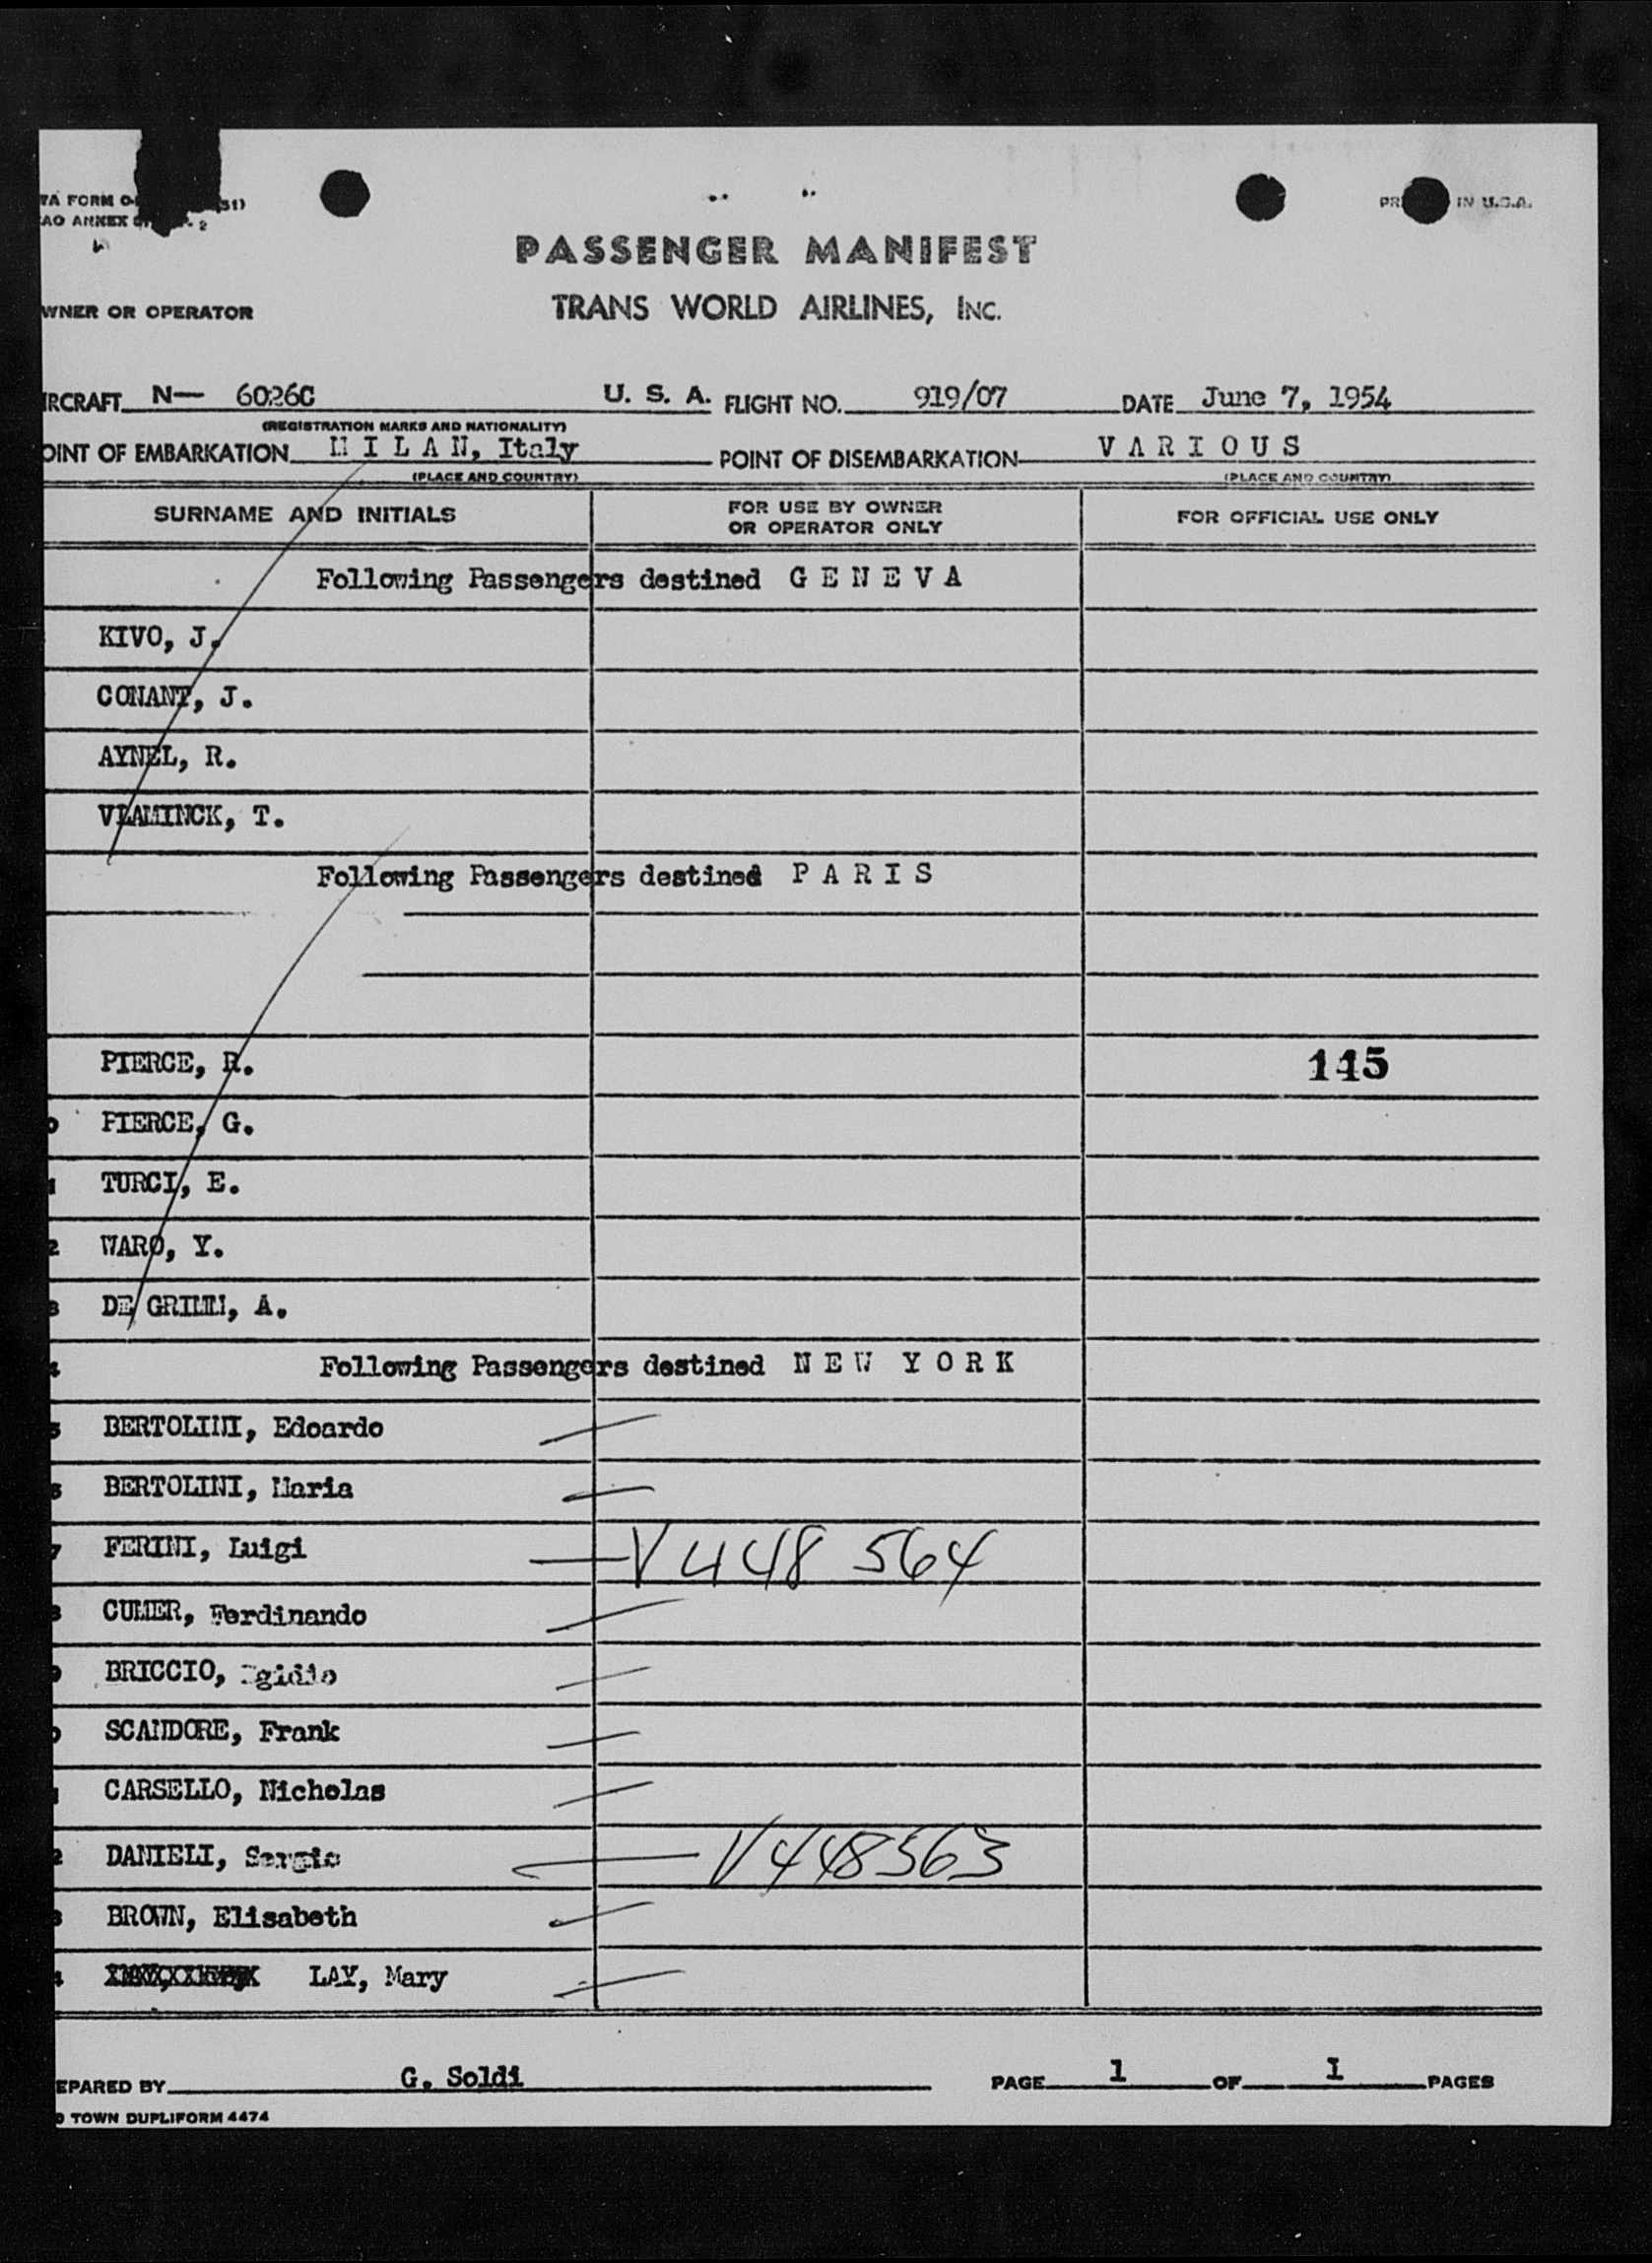 PASSENGER MANIFEST
WNER OR OPERATOR TRANS WORLD AIRLINES, INC.
IRCRAFT N— 6026C U. S. A. FLIGHT NO. 919/07 DATE June 7, 1954
(REGISTRATION MARKS AND NATIONALITY)
OINT OF EMBARKATION M I L A N, Italy POINT OF DISEMBARKATION V A R I O U S
(PLACE AND COUNTRY) (PLACE AND COUNTRY)
SURNAME AND INITIALS FOR USE BY OWNER OR OPERATOR ONLY FOR OFFICIAL USE ONLY
Following Passengers destined G E N E V A
KIVO, J.
CONANT, J.
AYNEL, R.
VLAMINCK, T.
Following Passengers destined P A R I S
PIERCE, R. 115
PIERCE, G.
TURCI, E.
WARO, Y.
DE A.
Following Passengers destined N E W Y O R K
BERTOLINI, Edoardo
BERTOLINI, Maria
FERINI, Luigi V448 564
CUMER, Ferdinando
BRICCIO, Egidio
SCANDORE, Frank
CARSELLO, Nicholas
DANIELI, Sergio V448563
BROWN, Elisabeth
LAY, Mary
EPARED BY G. Soldi PAGE 1 OF 1 PAGES
TOWN DUPLIFORM 4474